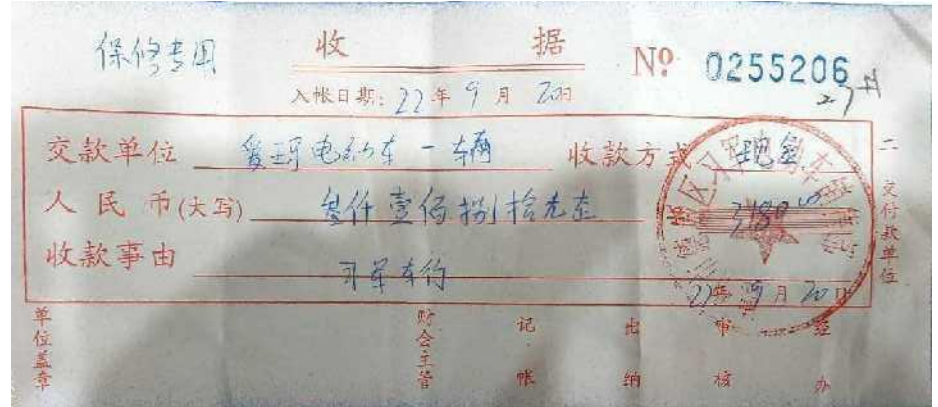 保修专用
收 据
№ 0255206
入帐日期: 22年 9月 20日
交款单位 爱玛电动车一辆 收款方式 现金
人民币(大写) 叁仟壹佰捌拾元整 3180
收款事由
22年 9月 20日
二 交付款单位
单位盖章 财会主管 记帐 出纳 审核 经办